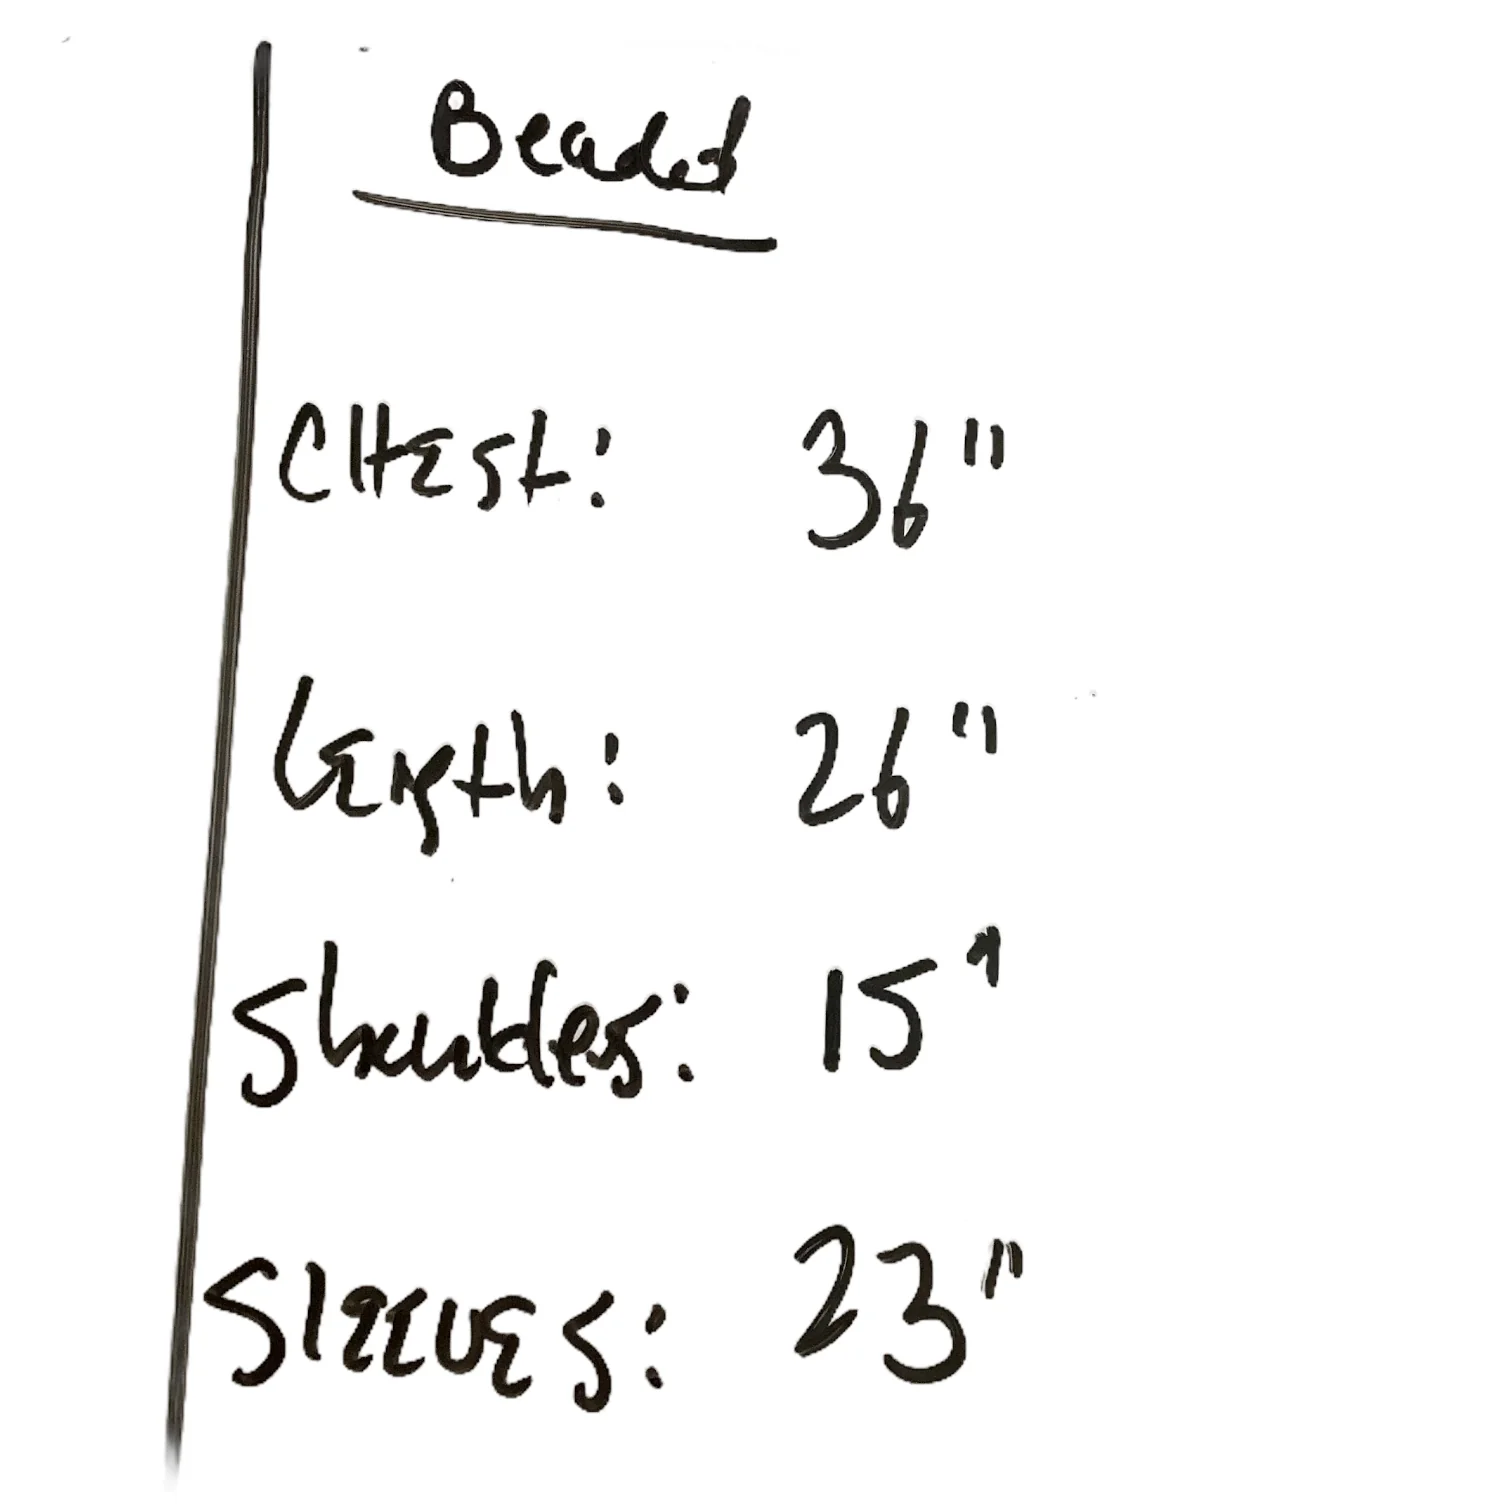 Beaded
CHEst:  36"
Length:  26"
Shoulders:  15"
SlEEVES:  23"